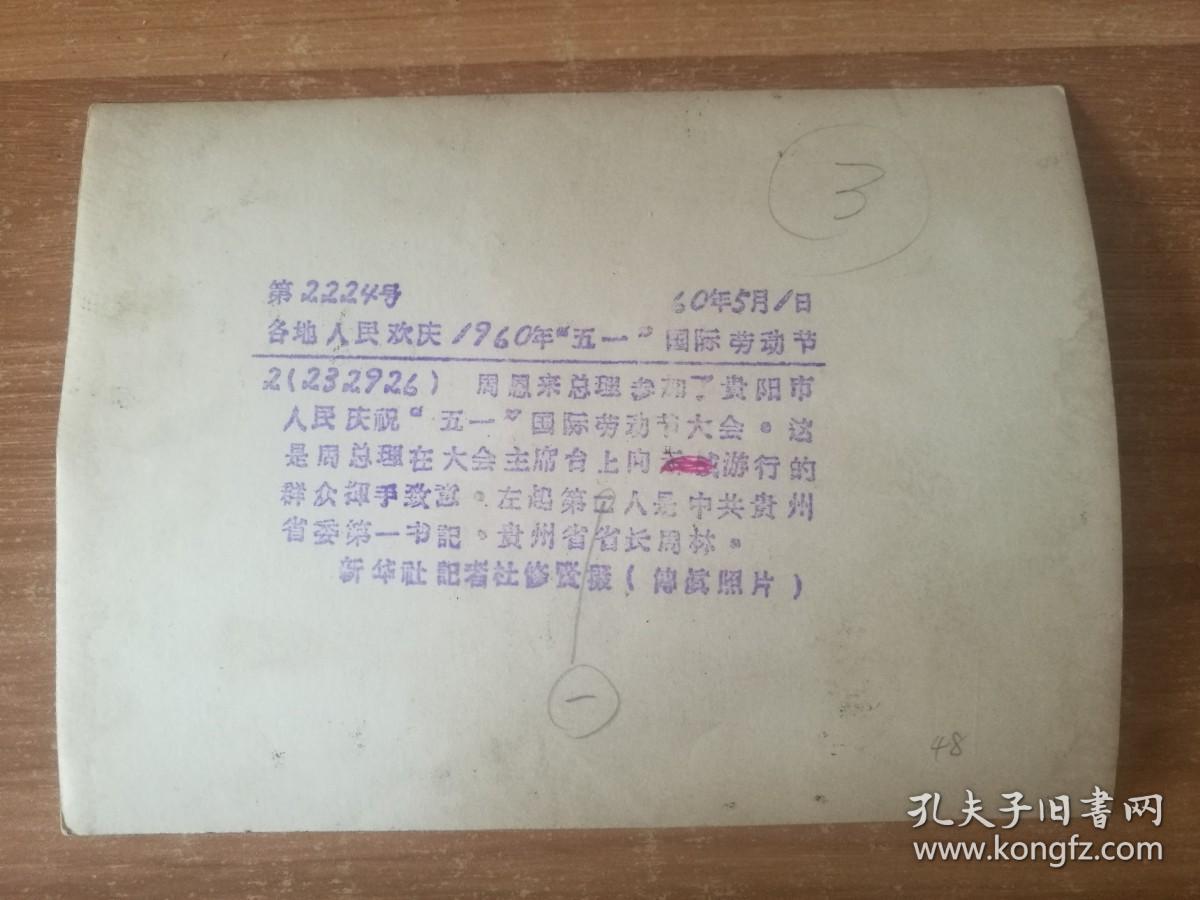 3
第2224号 60年5月1日
各地人民欢庆1960年“五一”国际劳动节
2(232926) 周恩来总理参加了贵阳市
人民庆祝“五一”国际劳动节大会。这
是周总理在大会主席台上向游行的
群众挥手致意。左起第人是中共贵州
省委第一书記。贵州省省长周林。
新华社記者社修贤摄(傳眞照片)
一
48
孔夫子旧書网
www.kongfz.com